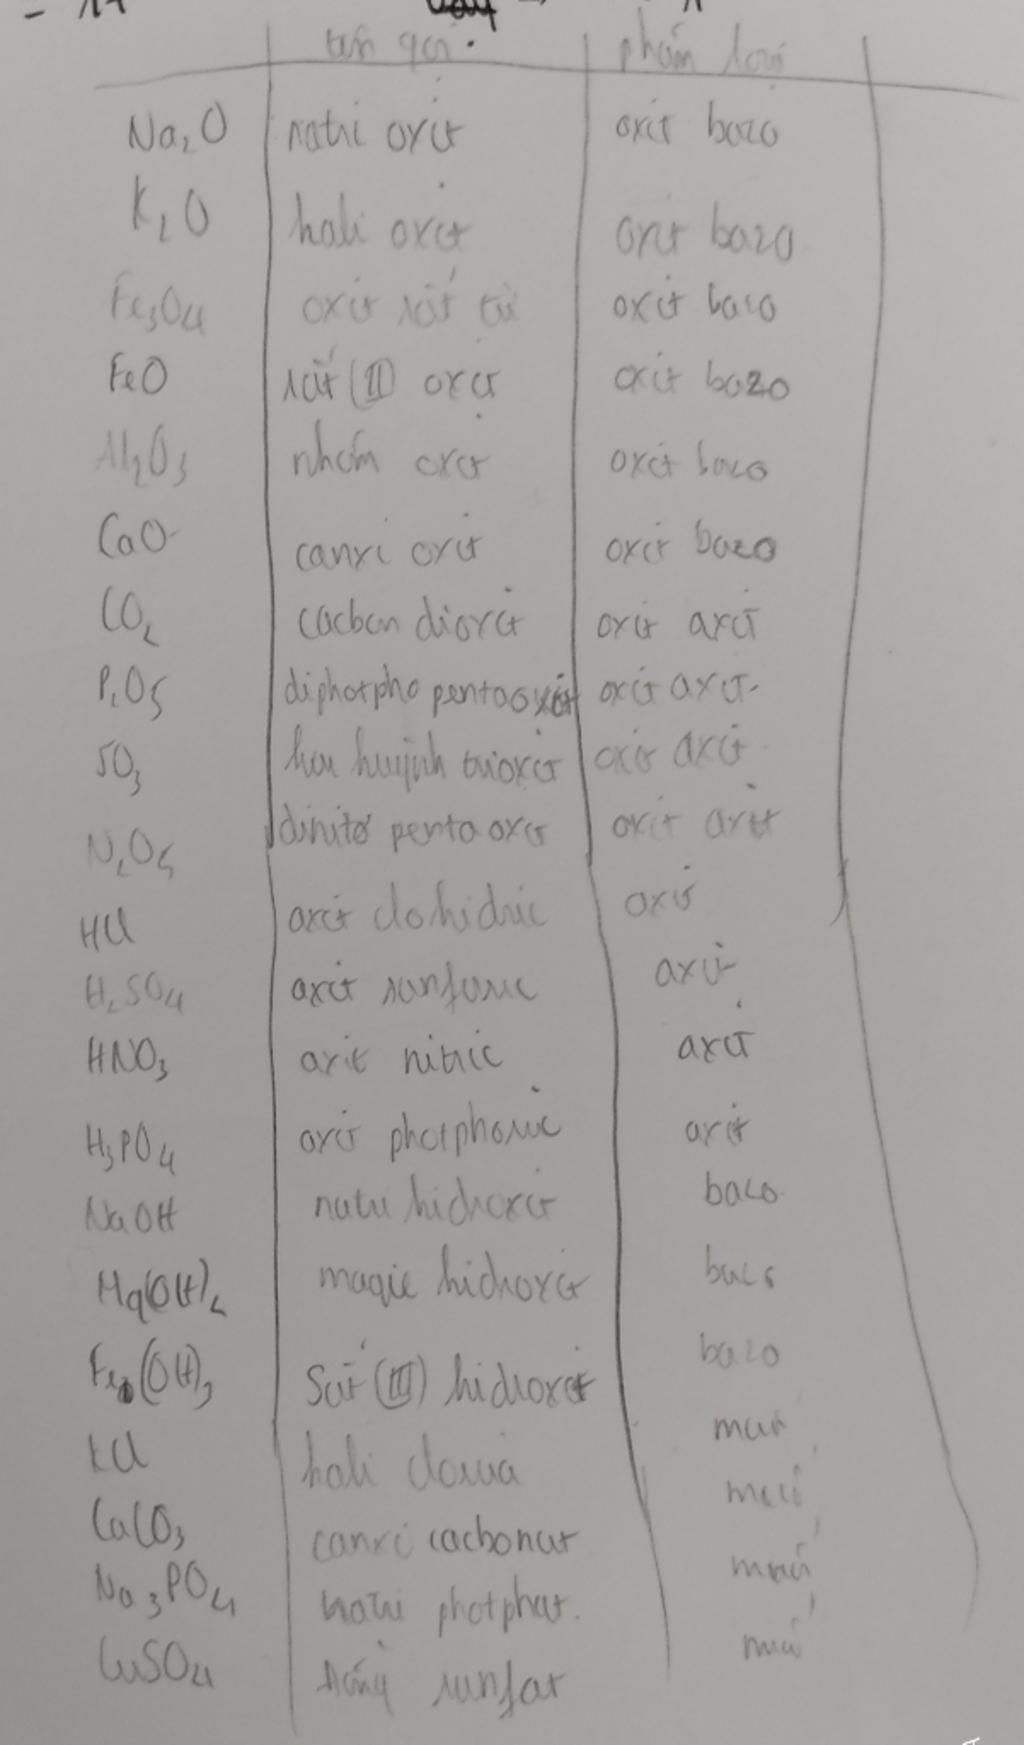 tên gọi. phân loại
Na2O natri oxit oxit bazo
K2O kali oxit oxit bazo
Fe3O4 oxit sắt từ oxit bazo
FeO sắt (II) oxit oxit bazo
Al2O3 nhôm oxit oxit bazo
CaO canxi oxit oxit bazo
CO2 cacbon dioxit oxit axit
P2O5 diphotpho pentaoxit oxit axit
SO3 lưu huỳnh trioxit oxit axit
N2O5 dinitơ pentaoxit oxit axit
HCl axit clohidric axit
H2SO4 axit sunfuric axit
HNO3 axit nitric axit
H3PO4 axit photphoric axit
NaOH natri hidroxit bazo
Mg(OH)2 magie hidroxit bazo
Fe(OH)3 Sắt (III) hidroxit bazo
KCl kali clorua muối
CaCO3 canxi cacbonat muối
Na3PO4 natri photphat. muối
CuSO4 đồng sunfat muối